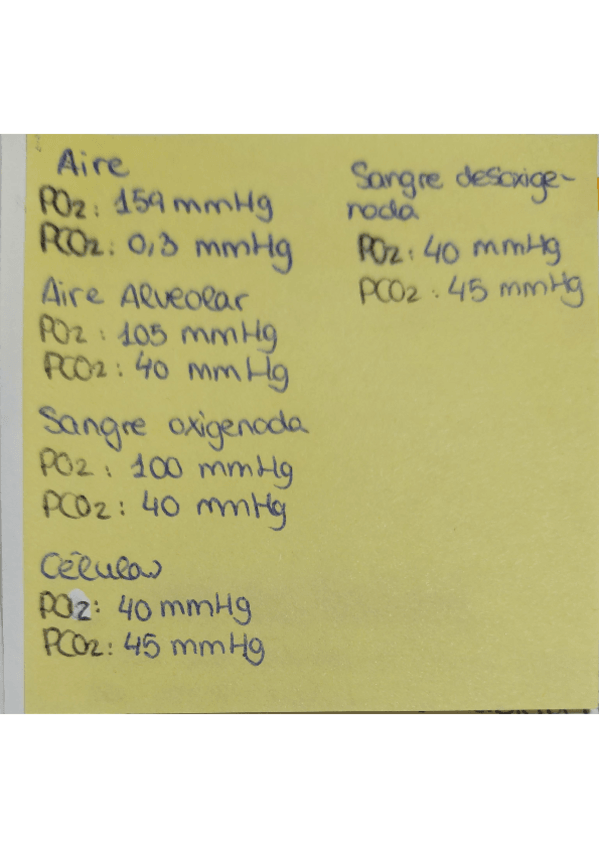 Aire
PO2: 159 mmHg
PCO2: 0,3 mmHg
Aire Alveolar
PO2: 105 mmHg
PCO2: 40 mmHg
Sangre oxigenada
PO2: 100 mmHg
PCO2: 40 mmHg
Células
PO2: 40 mmHg
PCO2: 45 mmHg
Sangre desoxige-
nada
PO2: 40 mmHg
PCO2: 45 mmHg